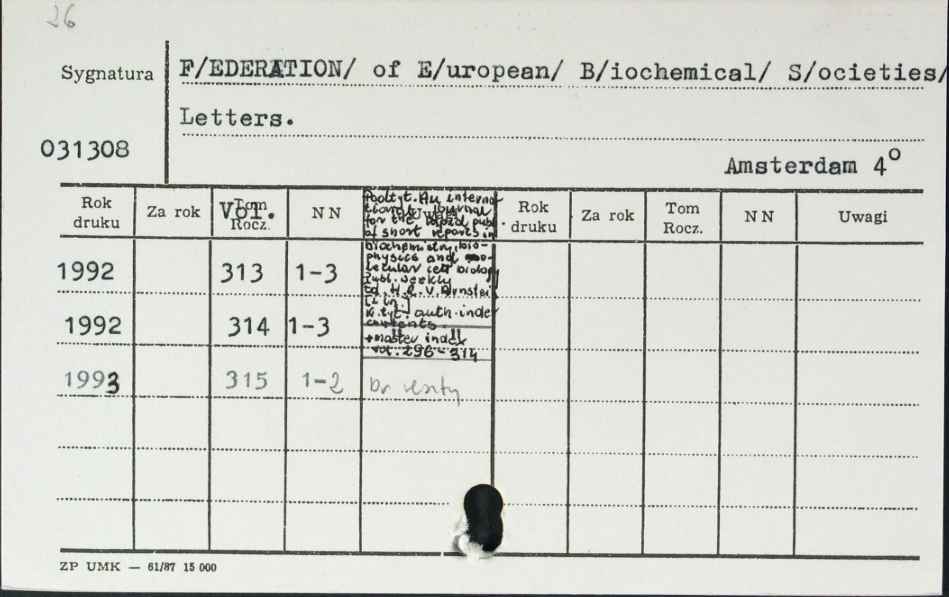 26
Sygnatura
F/EDERATION/ of E/uropean/ B/iochemical/ S/ocieties/
Letters.
031308
Amsterdam 4º
Rok druku Za rok Vol. Tom Rocz. NN Uwagi Rok druku Za rok Tom Rocz. NN Uwagi
Podtyt. An interna-
tional journal
for the rapid publ.
of short reports in
biochemistry, bio-
physics and mo-
lecular cell biology
Publ. weekly
Ed. H.R.V. Arnstein
[i in.]
W tyt. auth. index
contents.
+master index
vol. 296-314
1992 313 1-3
1992 314 1-3
1993 315 1-2 br. reszty
ZP UMK — 61/87 15 000